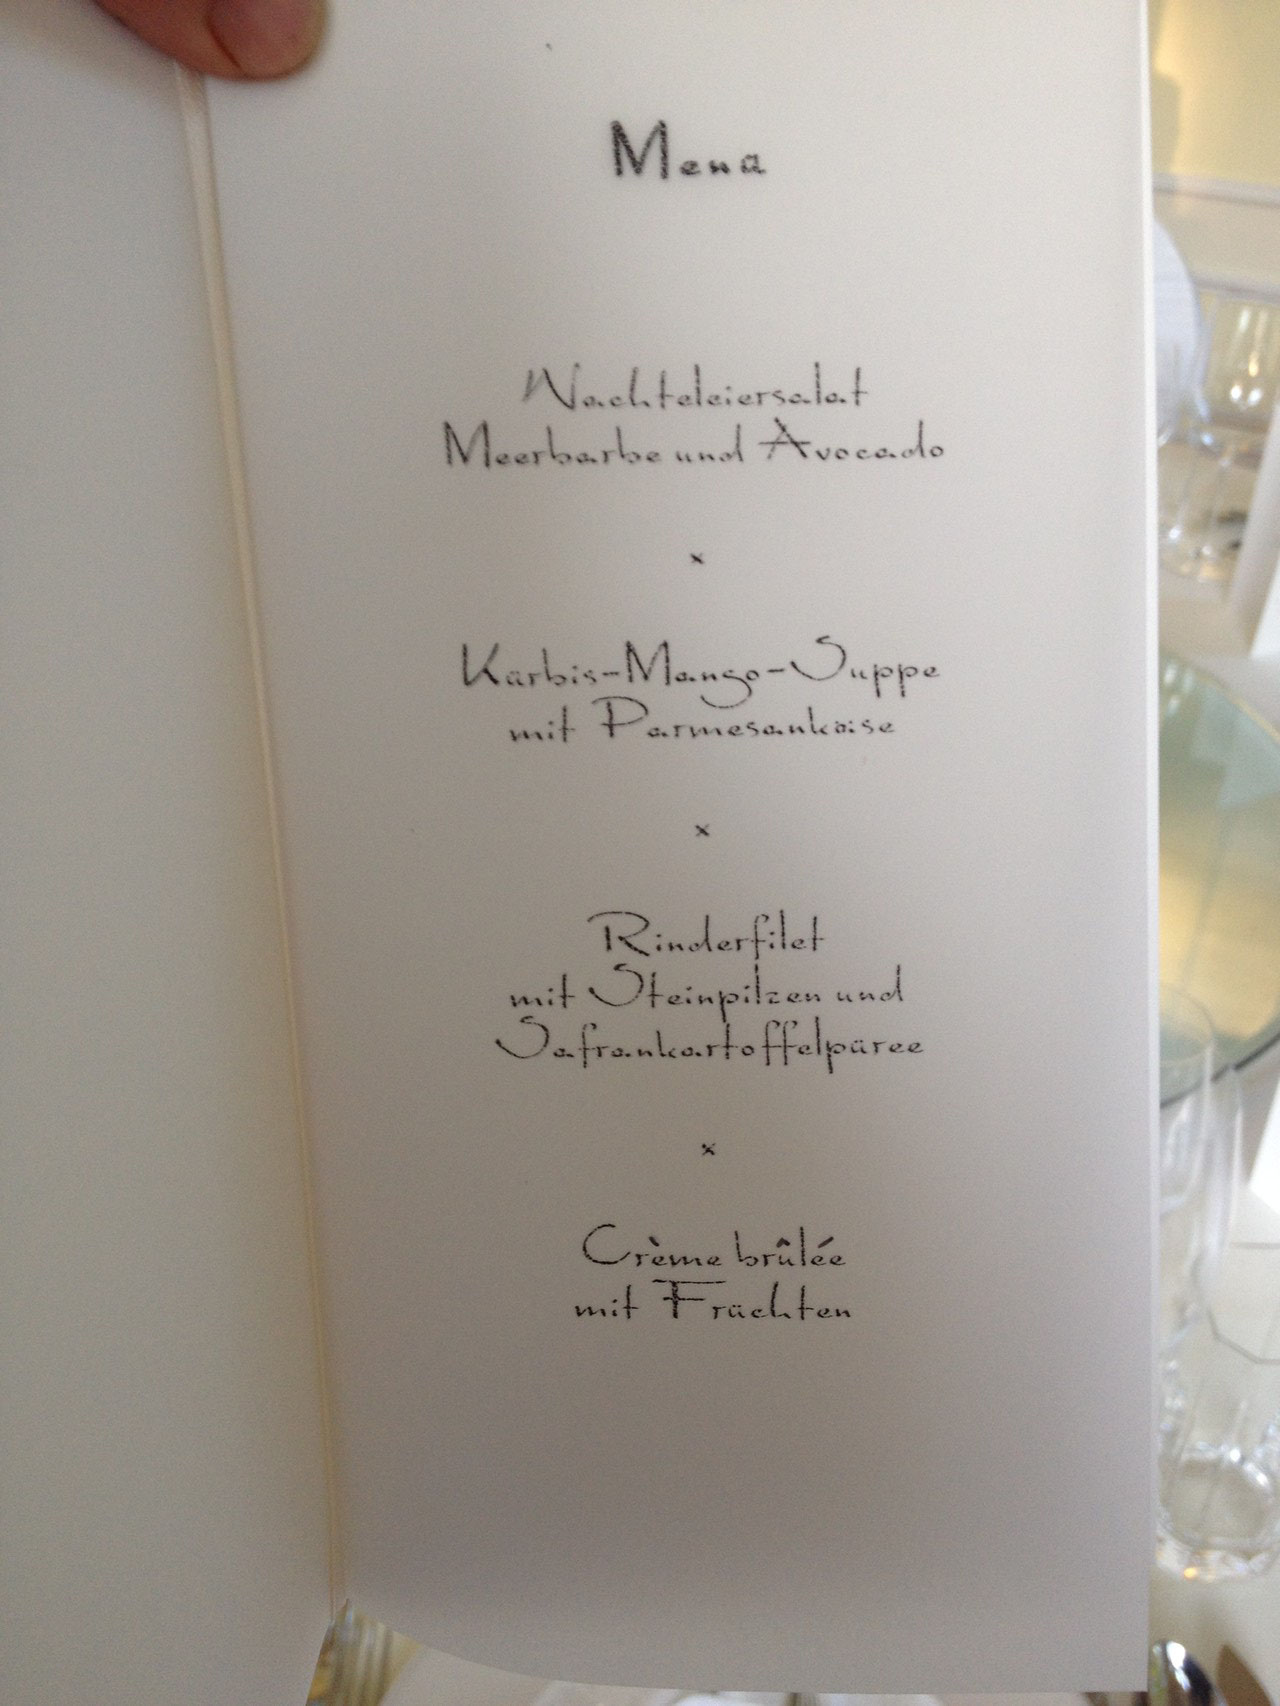 Menü
Wachteleiersalat
Meerbarbe und Avocado
x
Kürbis-Mango-Suppe
mit Parmesankäse
x
Rinderfilet
mit Steinpilzen und
Safrankartoffelpüree
x
Crème brûlée
mit Früchten